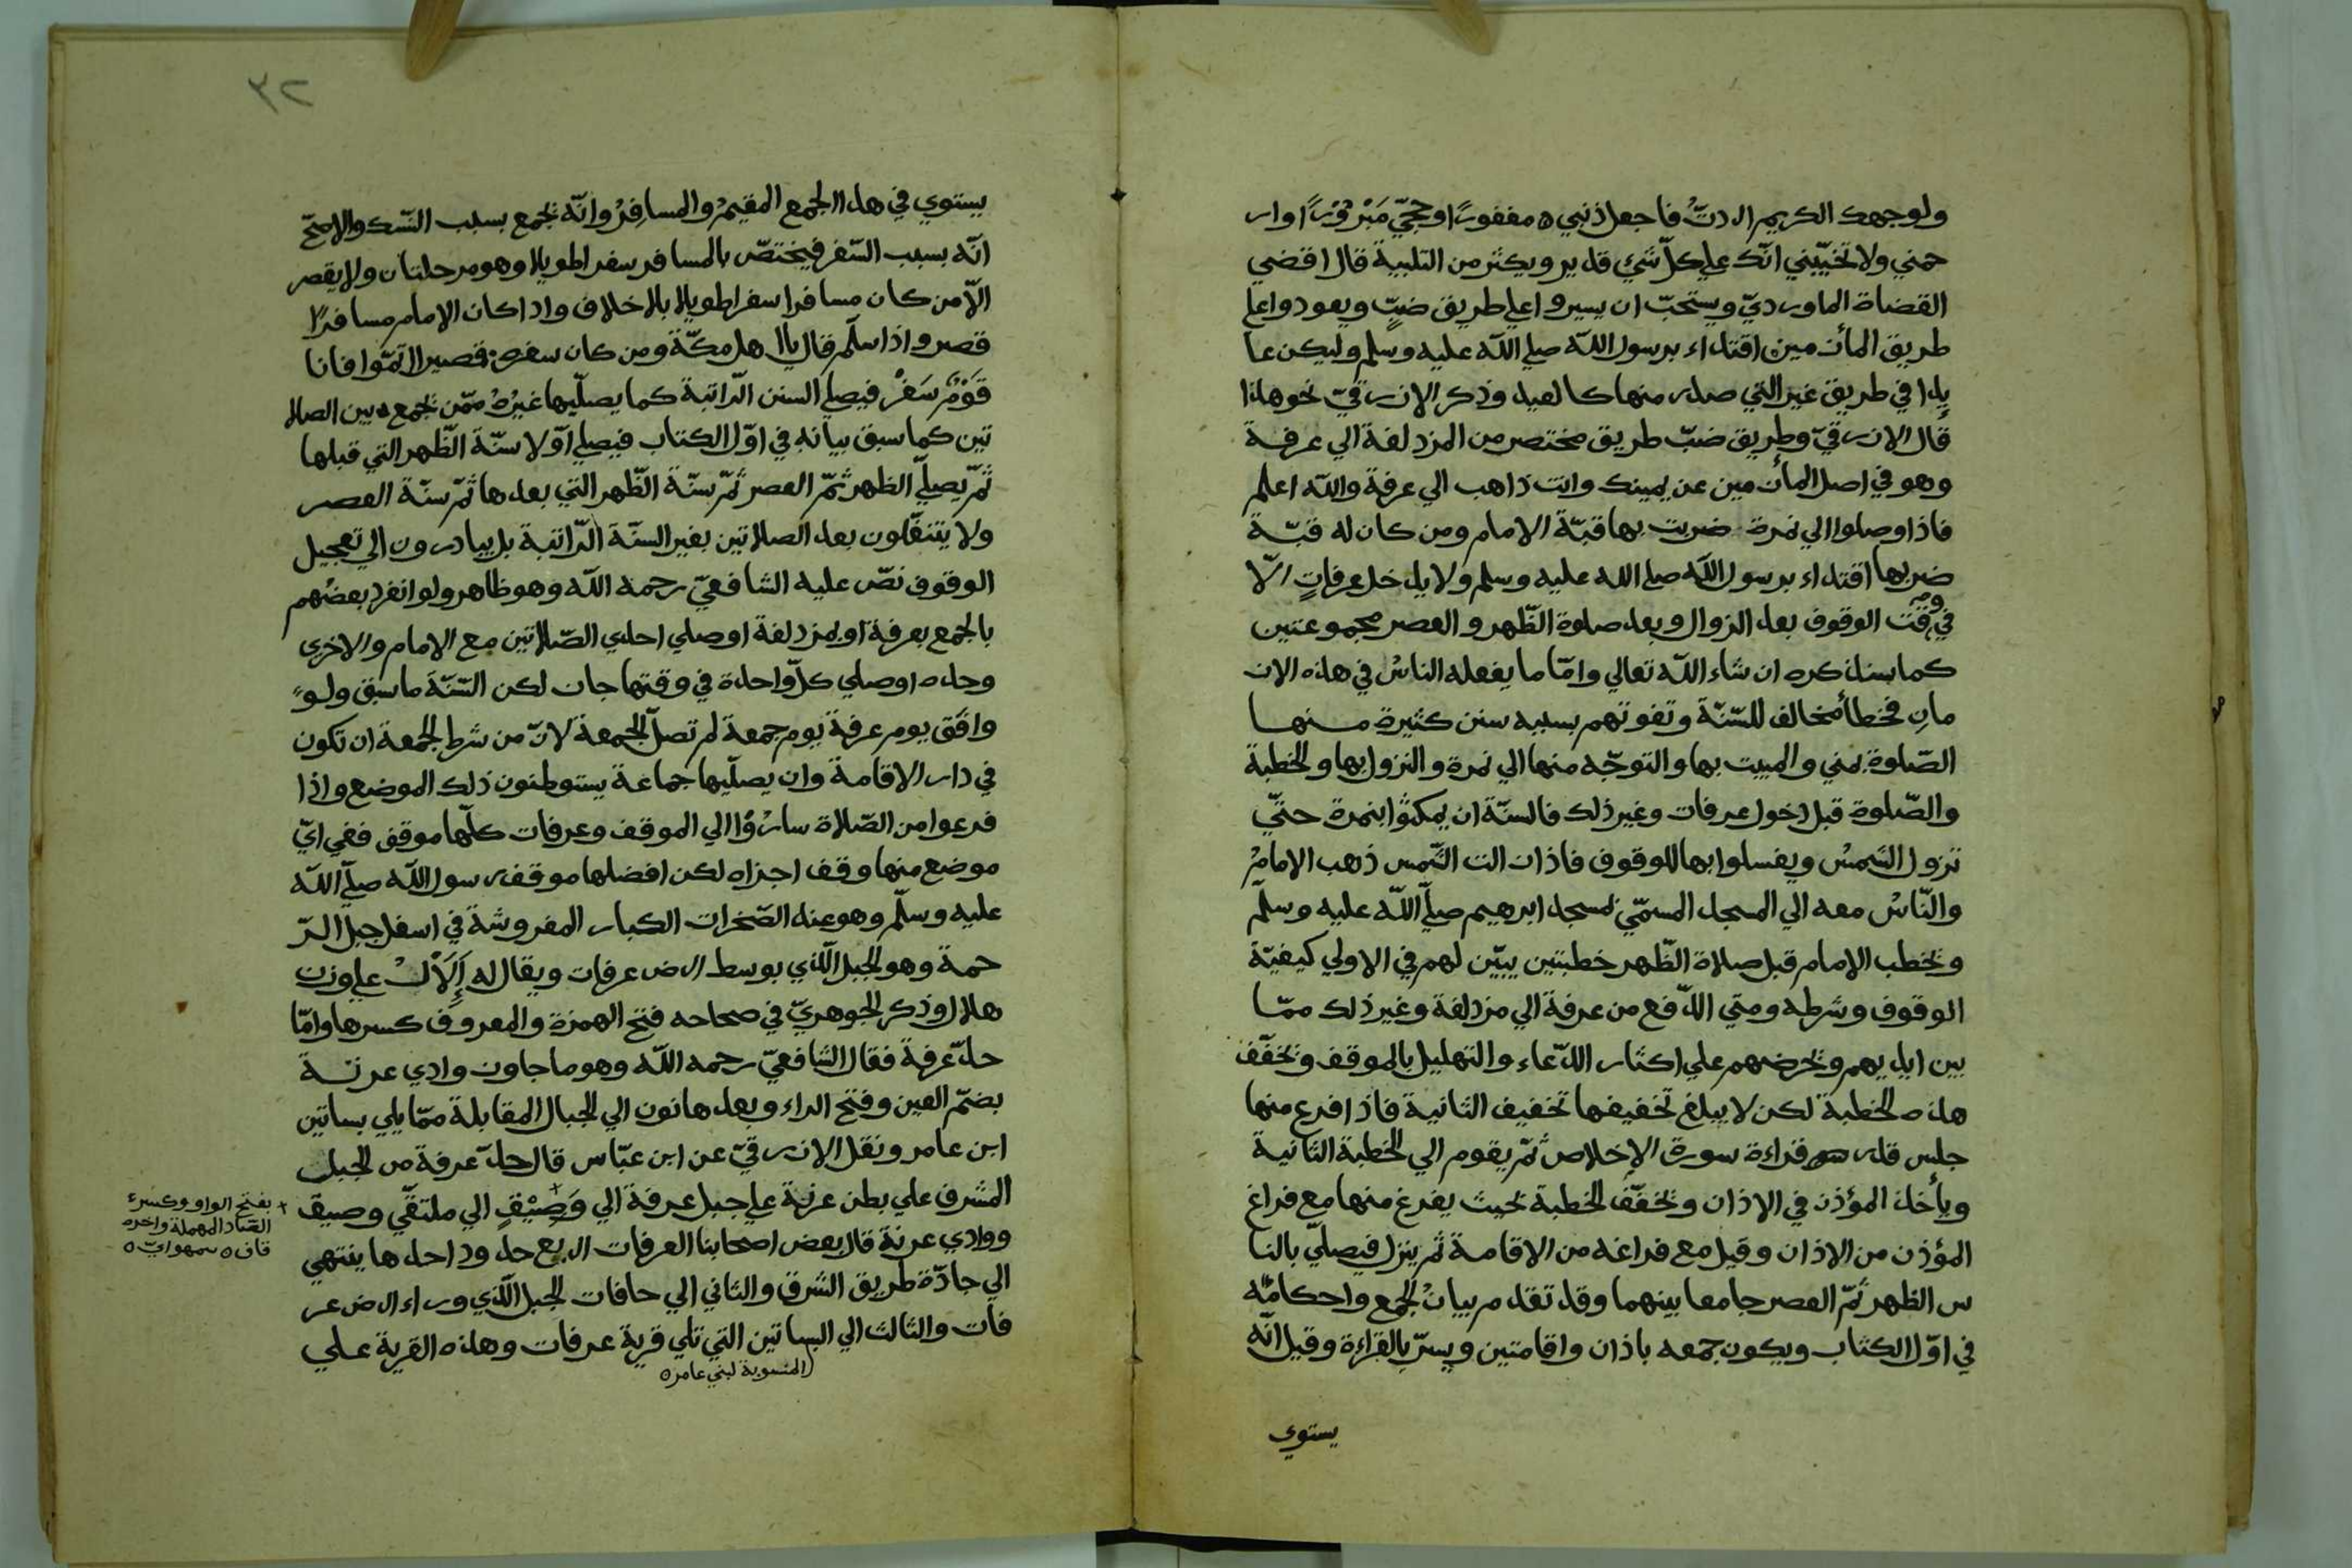 ولوجهك الكريم اردتُ فاجعل ذنبي ه مغفورًا وحجّي مَبْرُوْرًا وار
حمني ولا تخيّبني انّك علي كلّ شئ قدير ويكثر من التلبية قال اقضي
القضاة الماورديّ ويستحبّ ان يسيروا علي طريق ضبٍّ ويعودوا علي
طريق المأزمين اقتداء برسول اللّه صلي اللّه عليه وسلم وليكن عا
يدا في طريق غير التي صدر منها كالعيد وذكر الازرقيّ نحو هذا
قال الازرقيّ وطريق ضبّ طريق مختصر من المزدلفة الي عرفة
وهو في اصل المأزمين عن يمينك وانت ذاهب الي عرفة واللّه اعلم
فاذا وصلوا الي نمرة ضربت بها قبّة الامام ومن كان له قبّة
ضربها اقتداء برسول اللّه صلي الله عليه وسلم ولا يدخل عرفاتٍ الّا
في وقت الوقوف بعد الزوال وبعد صلوة الظّهر والعصر مجموعتين
كما سنذكره ان شاء اللّه تعالي وامّا ما يفعله الناسُ في هذه الاز
مانِ فخطأ مخالف للسّنّة وتفوتهم بسببه سنن كثيرة منها
الصّلوة بمني والمبيت بها والتوجّه منها الي نمرة والنزول بها والخطبة
والصّلوة قبل دخول عرفات وغير ذلك فالسنّة ان يمكثوُا بنمرة حتّي
تزول الشمسُ ويغسلوا بها للوقوف فاذا زالت الشّمس ذهب الامامُ
والنّاسُ معه الي المسجد المسمّي بمسجد ابرهيم صلّي اللّه عليه وسلّم
ويخطب الامام قبل صلاة الظّهر خطبتين يبيّن لهم في الاولي كيفيّة
الوقوف وشرطه ومتي الدّفع من عرفة الي مزدلفة وغير ذلك ممّا
بين ايديهم ويحرضهم علي اكثار الدّعاء والتهليل بالموقف ويخفّف
هذه الخطبة لكن لا يبلغ تخفيفها تخفيف الثانية فاذا فرغ منها
جلس قدر قراءة سورة الإخلاص ثمّ يقوم الي الخطبة الثانية
ويأخذ المؤذن في الاذان ويخفّف الخطبة بحيث يفرغ منها مع فراغ
المؤذن من الاذان وقيل مع فراغه من الاقامة ثم ينزل فيصلّي بالنا
س الظهر ثمّ العصر جامعا بينهما وقد تقدم بيانُ الجمع واحكامُه
في اوّل الكتاب ويكون جمعه باذان واقامتين ويسرّ بالقراءة وقيل انّه
يستوي
٣٢
يستوي في هذا الجمع المقيمُ والمسافِرُ وانّه يجمع بسبب النّسك والاصحّ
انّه بسبب السّفر فيختصّ بالمسافر سفرا طويلا وهو مرحلتان ولا يقصر
الّا من كان مسافرا سفرا طويلا بلا خلاف واذا كان الامام مسافرًا
قصر واذا سلّم قال يا اهل مكّة ومن كان سفره قصيرا اتمّوا فانا
قَوْمٌ سَفْرٌ فيصلي السنن الرّاتبة كما يصلّيها غيرُهُ ممّن يجمع ه بين الصلا
تين كما سبق بيانه في اوّل الكتاب فيصلي اوّلا سنّة الظّهر التي قبلها
ثمّ يصلّي الظهر ثمّ العصر ثمّ سنّة الظّهر التي بعدها ثمّ سنّة العصر
ولا يتنفّلون بعد الصلاتين بغير السنّة الرّاتبة بل يبادرون الي تعجيل
الوقوف نصّ عليه الشافعيّ رحمه اللّه وهو ظاهر ولو انفرد بعضُهم
بالجمع بعرفة او بمزدلفة او صلي احدي الصّلاتين مع الامام والاخري
وحده او صلي كلّ واحدة في وقتها جاز لكن السّنّة ما سبق ولو
وافَق يوم عرفة يوم جمعة لم تصلّ الجمعة لانّ من شرط الجمعة ان تكون
في دار الاقامة وان يصلّيها جماعة يستوطنون ذلك الموضع واذا
فرغوا من الصّلاة سارُوُا الي الموقف وعرفات كلّها موقف ففي ايّ
موضع منها وقف اجزاه لكن افضلها موقف رسول اللّه صلّي اللّه
عليه وسلّم وهو عند الصّخرات الكبار المفروشة في اسفل جبل الرّ
حمة وهو الجبل الّذي بوسط ارض عرفات ويقال له إِلَالْ علي وزن
هلال وذكر الجوهريّ في صحاحه فتح الهمزة والمعروف كسرها وامّا
حدّ عرفة فقال الشافعيّ رحمه اللّه وهو ما جاوز وادي عرنة
بضمّ العين وفتح الراء وبعدها نون الي الجبال المقابلة ممّا يلي بساتين
ابن عامر ونقل الازرقيّ عن ابن عبّاس قال حدّ عرفة من الجبل
المشرف علي بطن عرنة علي جبل عرفة الي وَصِيْقٍ الي ملتقّي وصيق
ووادي عرنة قال بعض اصحابنا العرفات اربع حدود احدها ينتهي
الي جادّة طريق الشرق والثاني الي حافات الجبل الّذي وراء ارض عر
فات والثالث الي البساتين التي تلي قرية عرفات وهذه القرية علي
المنسوبة لبني عامر ه
بفتح الواو وكسر
الصّاد المهملة واخره
قاف ه سمهوايّ ه